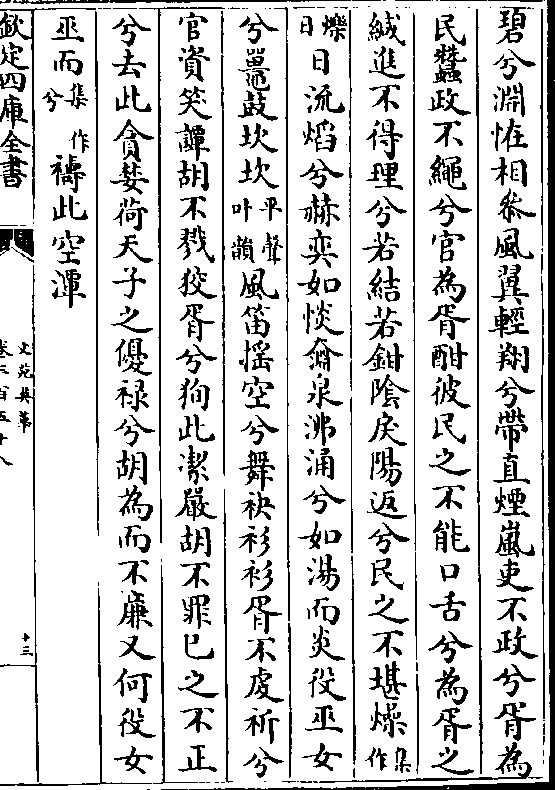 碧兮淵恠相叅風翼輕翔兮帶直煙嵐吏不政兮胥為
民蠧政不繩兮官為胥酣彼民之不能口舌兮為胥之
緘進不得理兮若結若鉗陰戾陽返兮民之不堪燥集作
爍日日流熖兮赫奕如惔衆泉沸涌兮如湯而炎役巫女
兮鼉鼓坎坎平聲叶韻風笛揺空兮舞袂衫衫胥不虔祈兮
官資笑譚胡不戮狡胥兮狥此潔嚴胡不罪已之不正
兮去此貪婪荷天子之優禄兮胡為而不廉又何役女
巫而集作兮禱此空潭
欽定四庫全書
文苑英華
卷三百五十八
十三